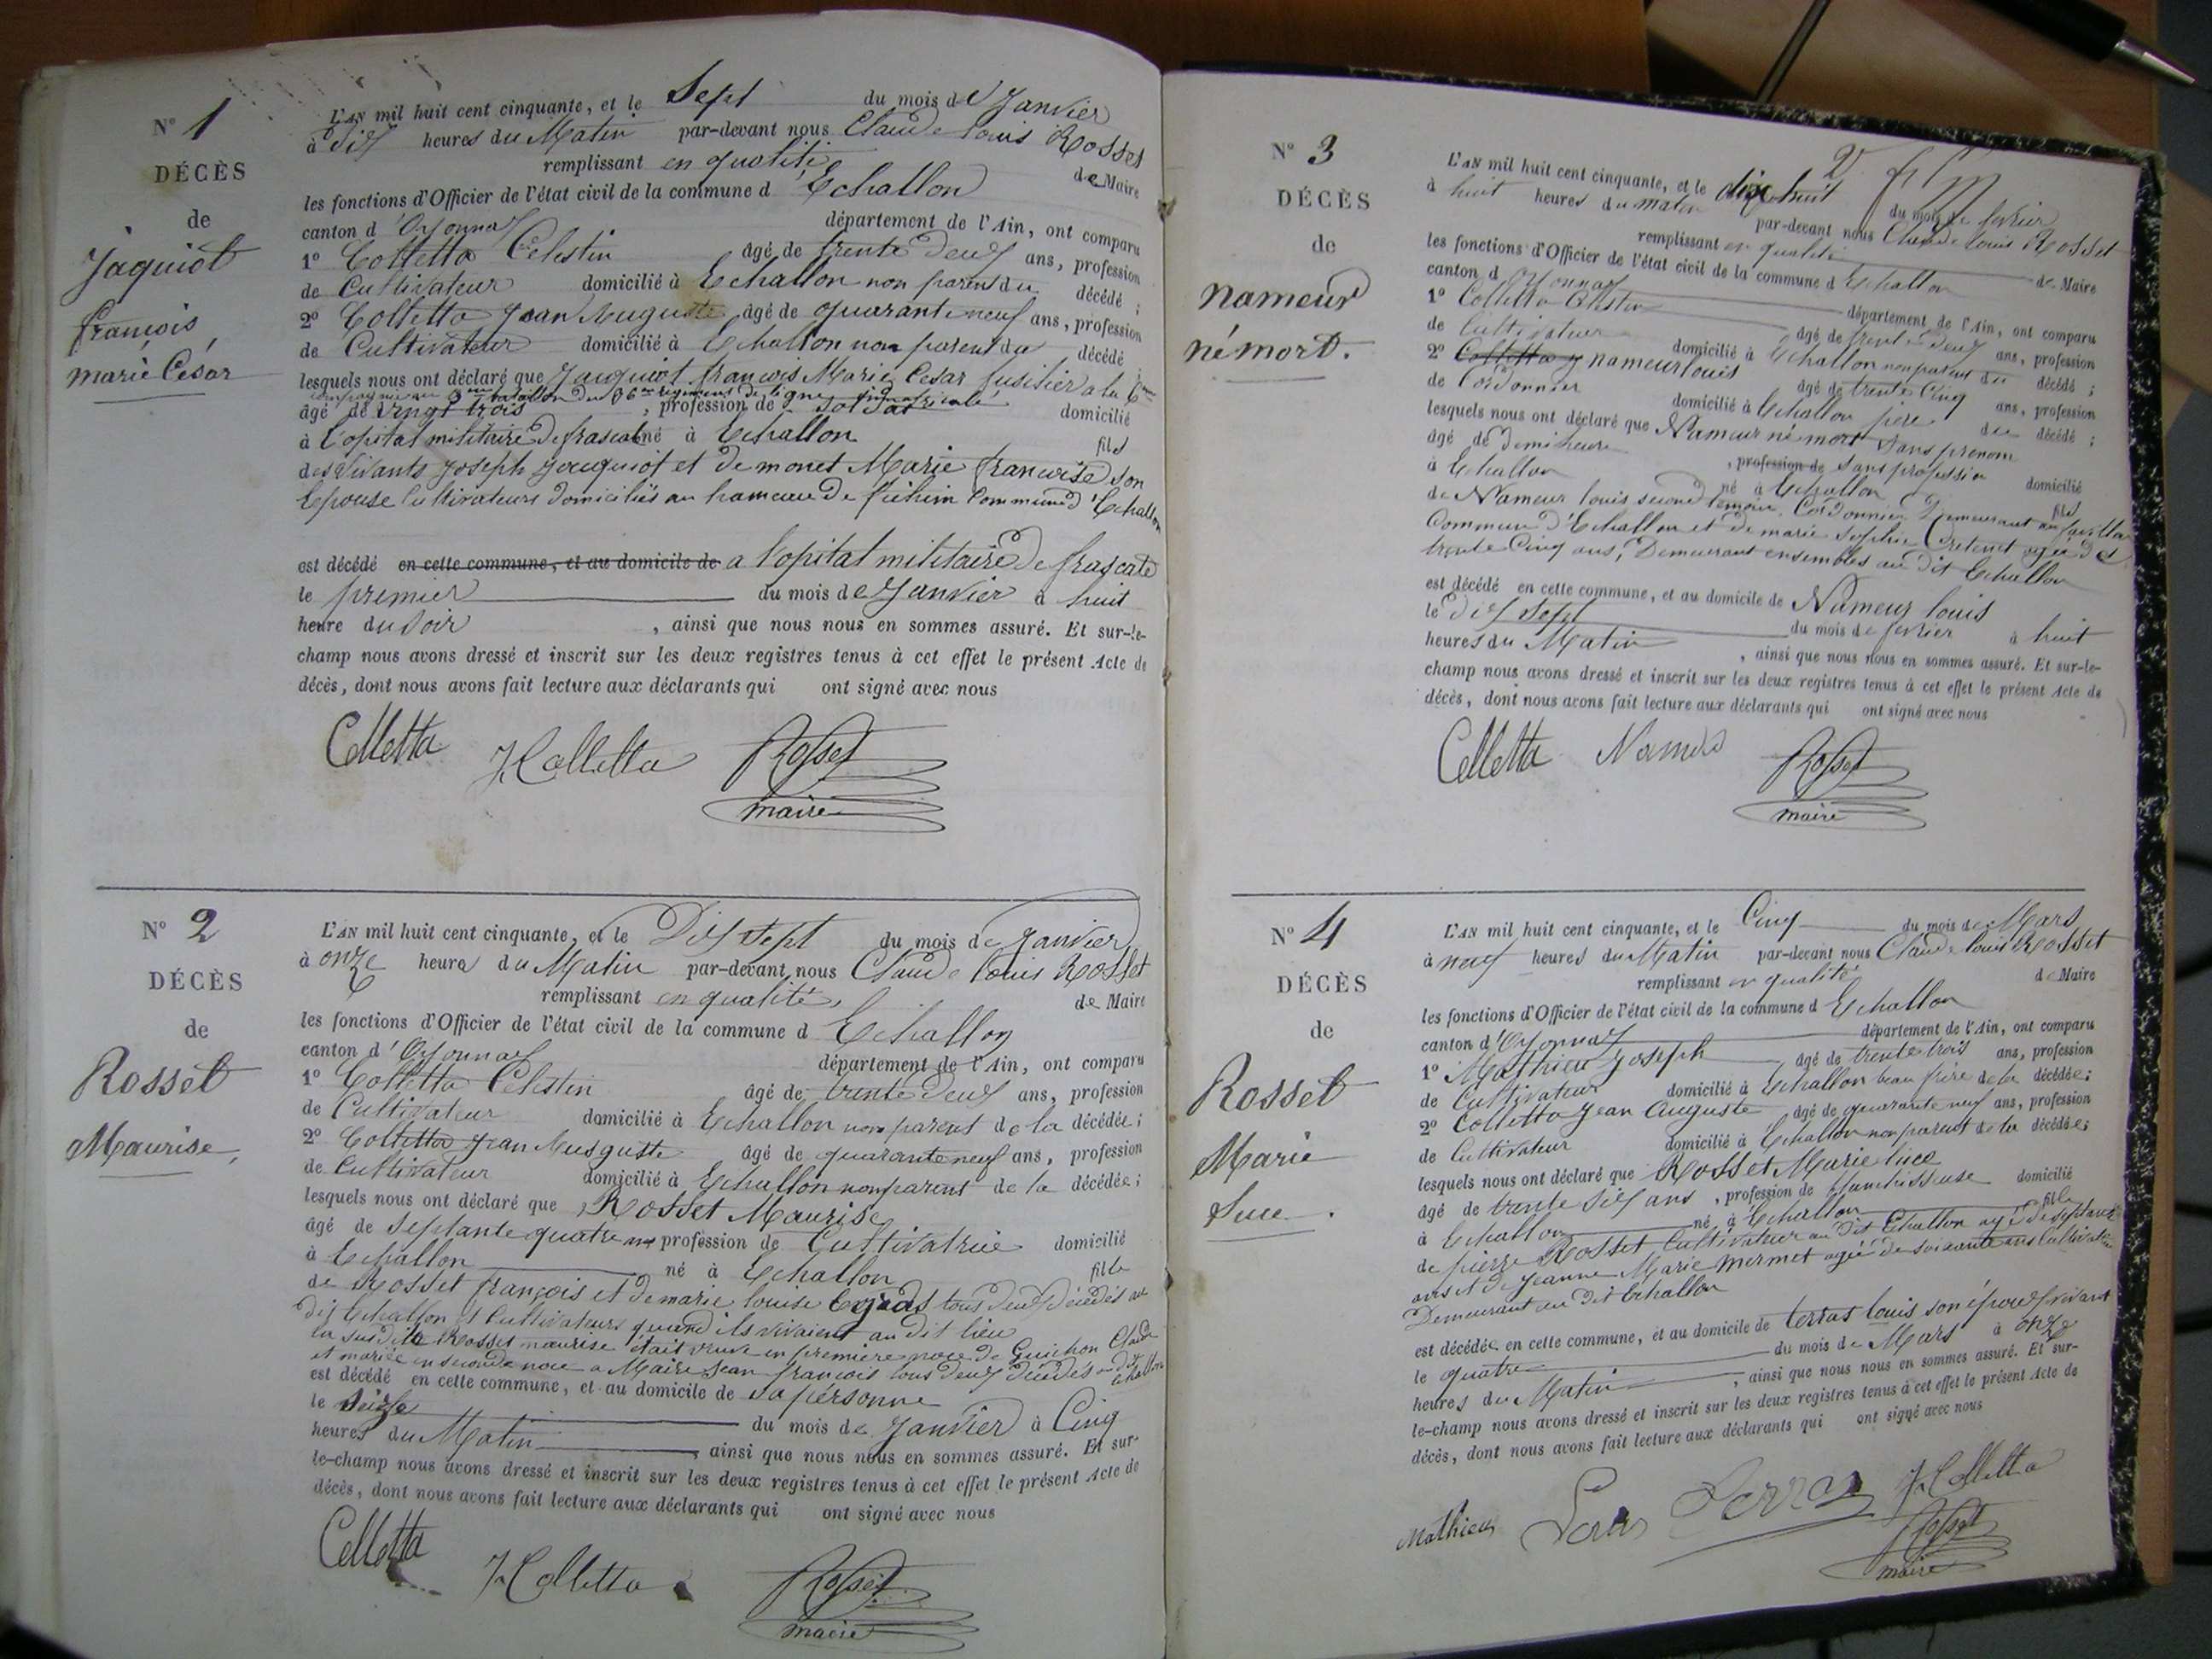 N° 1
DÉCÈS
de
Jaquiot
françois
marie César
L'AN mil huit cent cinquante, et le Sept du mois de Janvier
à dix heures du Matin par-devant nous Claude Louis Rosset
remplissant en qualité de Maire
les fonctions d'Officier de l'état civil de la commune d Echallon
canton d'Oyonnax département de l'Ain, ont comparu
1° Colletta Celestin âgé de trente deux ans, profession
de Cultivateur domicilié à Echallon non parent du décédé ;
2° Colletta Jean Auguste âgé de quarante neuf ans, profession
de Cultivateur domicilié à Echallon non parent du décédé
lesquels nous ont déclaré que Jacquiot françois Marie Cesar fusilier a la 6me
compagnie au 3me batallon du 36me regiment de ligne
âgé de vingt trois , profession de Soldat domicilié
à l'opital militaire de frascati né à Echallon fils
des vivants Joseph Jacquiot et de monet Marie françoise son
Epouse Cultivateurs domiciliés au hameau de commune d'Echallon
est décédé en cette commune, et au domicile de a l'opital militaire de frascate
le premier du mois de Janvier à huit
heure du Soir , ainsi que nous nous en sommes assuré. Et sur-le-
champ nous avons dressé et inscrit sur les deux registres tenus à cet effet le présent Acte de
décès, dont nous avons fait lecture aux déclarants qui ont signé avec nous
Colletta J Colletta Rosset
maire
N° 2
DÉCÈS
de
Rosset
Maurise
L'AN mil huit cent cinquante, et le Dix Sept du mois de Janvier
à onze heure du Matin par-devant nous Claude Louis Rosset
remplissant en qualité de Maire
les fonctions d'Officier de l'état civil de la commune d Echallon
canton d'Oyonnax département de l'Ain, ont comparu
1° Colletta Celestin âgé de trente deux ans, profession
de Cultivateur domicilié à Echallon non parent de la décédée ;
2° Colletta Jean Auguste âgé de quarante neuf ans, profession
de Cultivateur domicilié à Echallon non parent de la décédée ;
lesquels nous ont déclaré que Rosset Maurise
âgé de Septante quatre ans profession de Cultivatrice domicilié
à Echallon né à Echallon fille
de Rosset françois et de marie louise tous deux décédés au
dit Echallon et Cultivateurs quand ils vivaient au dit lieu
la susdite Rosset maurise était veuve en première noce de Guichon Claude
et mariée en seconde noce a Maire Jean françois tous deux décédés au dit Echallon
est décédé en cette commune, et au domicile de sa personne
le Seize du mois de Janvier à Cinq
heures du Matin , ainsi que nous nous en sommes assuré. Et sur-
le-champ nous avons dressé et inscrit sur les deux registres tenus à cet effet le présent Acte de
décès, dont nous avons fait lecture aux déclarants qui ont signé avec nous
Colletta J Colletta Rosset
maire
N° 3
DÉCÈS
de
nameur
né mort.
L'AN mil huit cent cinquante, et le dix huit du mois de fevrier
à huit heures du matin par-devant nous Claude Louis Rosset
remplissant en qualité de Maire
les fonctions d'Officier de l'état civil de la commune d Echallon
canton d Oyonnax département de l'Ain, ont comparu
1° Colletta Celestin âgé de trente deux ans, profession
de Cultivateur domicilié à Echallon non parent du décédé ;
2° Colletta J nameur louis âgé de trente Cinq ans, profession
de Cordonnier domicilié à Echallon père du décédé ;
lesquels nous ont déclaré que Nameur né mort sans prenom
âgé de demi heure , profession de sans profession domicilié
à Echallon né à Echallon fils
de Nameur louis second temoin Cordonnier Demeurant au
Commune d'Echallon et de marie Sophie Cretenet agée de
trente Cinq ans, Demeurant ensembles au dit Echallon
est décédé en cette commune, et au domicile de Nameur louis
le Dix Sept du mois de fevrier à huit
heures du Matin , ainsi que nous nous en sommes assuré. Et sur-le-
champ nous avons dressé et inscrit sur les deux registres tenus à cet effet le présent Acte de
décès, dont nous avons fait lecture aux déclarants qui ont signé avec nous
Colletta Rosset
maire
N° 4
DÉCÈS
de
Rosset
Marie
Luce.
L'AN mil huit cent cinquante, et le Cinq du mois de Mars
à neuf heures du Matin par-devant nous Claude louis Rosset
remplissant en qualité de Maire
les fonctions d'Officier de l'état civil de la commune d Echallon
canton d'Oyonnax département de l'Ain, ont comparu
1° Mathieu Joseph âgé de trente trois ans, profession
de Cultivateur domicilié à Echallon beau frère de la décédée ;
2° Colletta Jean Auguste âgé de quarante neuf ans, profession
de Cultivateur domicilié à Echallon non parent de la décédée ;
lesquels nous ont déclaré que Rosset Marie luce
âgé de trente six ans , profession de blanchisseuse domicilié
à Echallon né à Echallon fille
de pierre Rosset Cultivateur au dit Echallon agé de septante
ans et de Jeanne Marie Mermet agée de soixante ans Cultivatrice
Demeurant au dit Echallon
est décédée en cette commune, et au domicile de terras louis son époux vivant
le quatre du mois de Mars à onze
heures du Matin , ainsi que nous nous en sommes assuré. Et sur-
le-champ nous avons dressé et inscrit sur les deux registres tenus à cet effet le présent Acte de
décès, dont nous avons fait lecture aux déclarants qui ont signé avec nous
Mathieu J Colletta
Rosset
maire